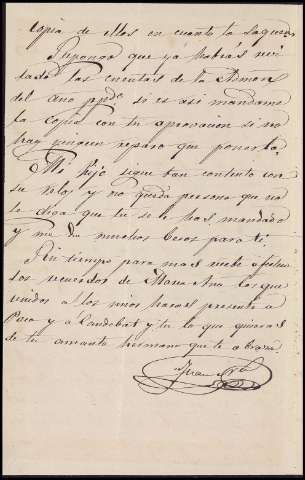 copia de ellas en cuanto la saquen
Supongo que ya habrás revi
sado las cuentas de la Simon
del año ppdo si es asi mandame
la copia con tu aprovacion si no
hay ningun reparo que ponerla.
Mi hijo sigue tan contento con
su reloj y no queda persona que no
le diga que tu se lo has mandado
y me da muchos besos para ti.
Sin tiempo para mas recibe afectuo
sos recuerdos de Maria Ana los que
unidos a los mios haras presente a
Paca y á Candebat y tu lo que quieras
de tu amante hermano que te abraza.
Juan